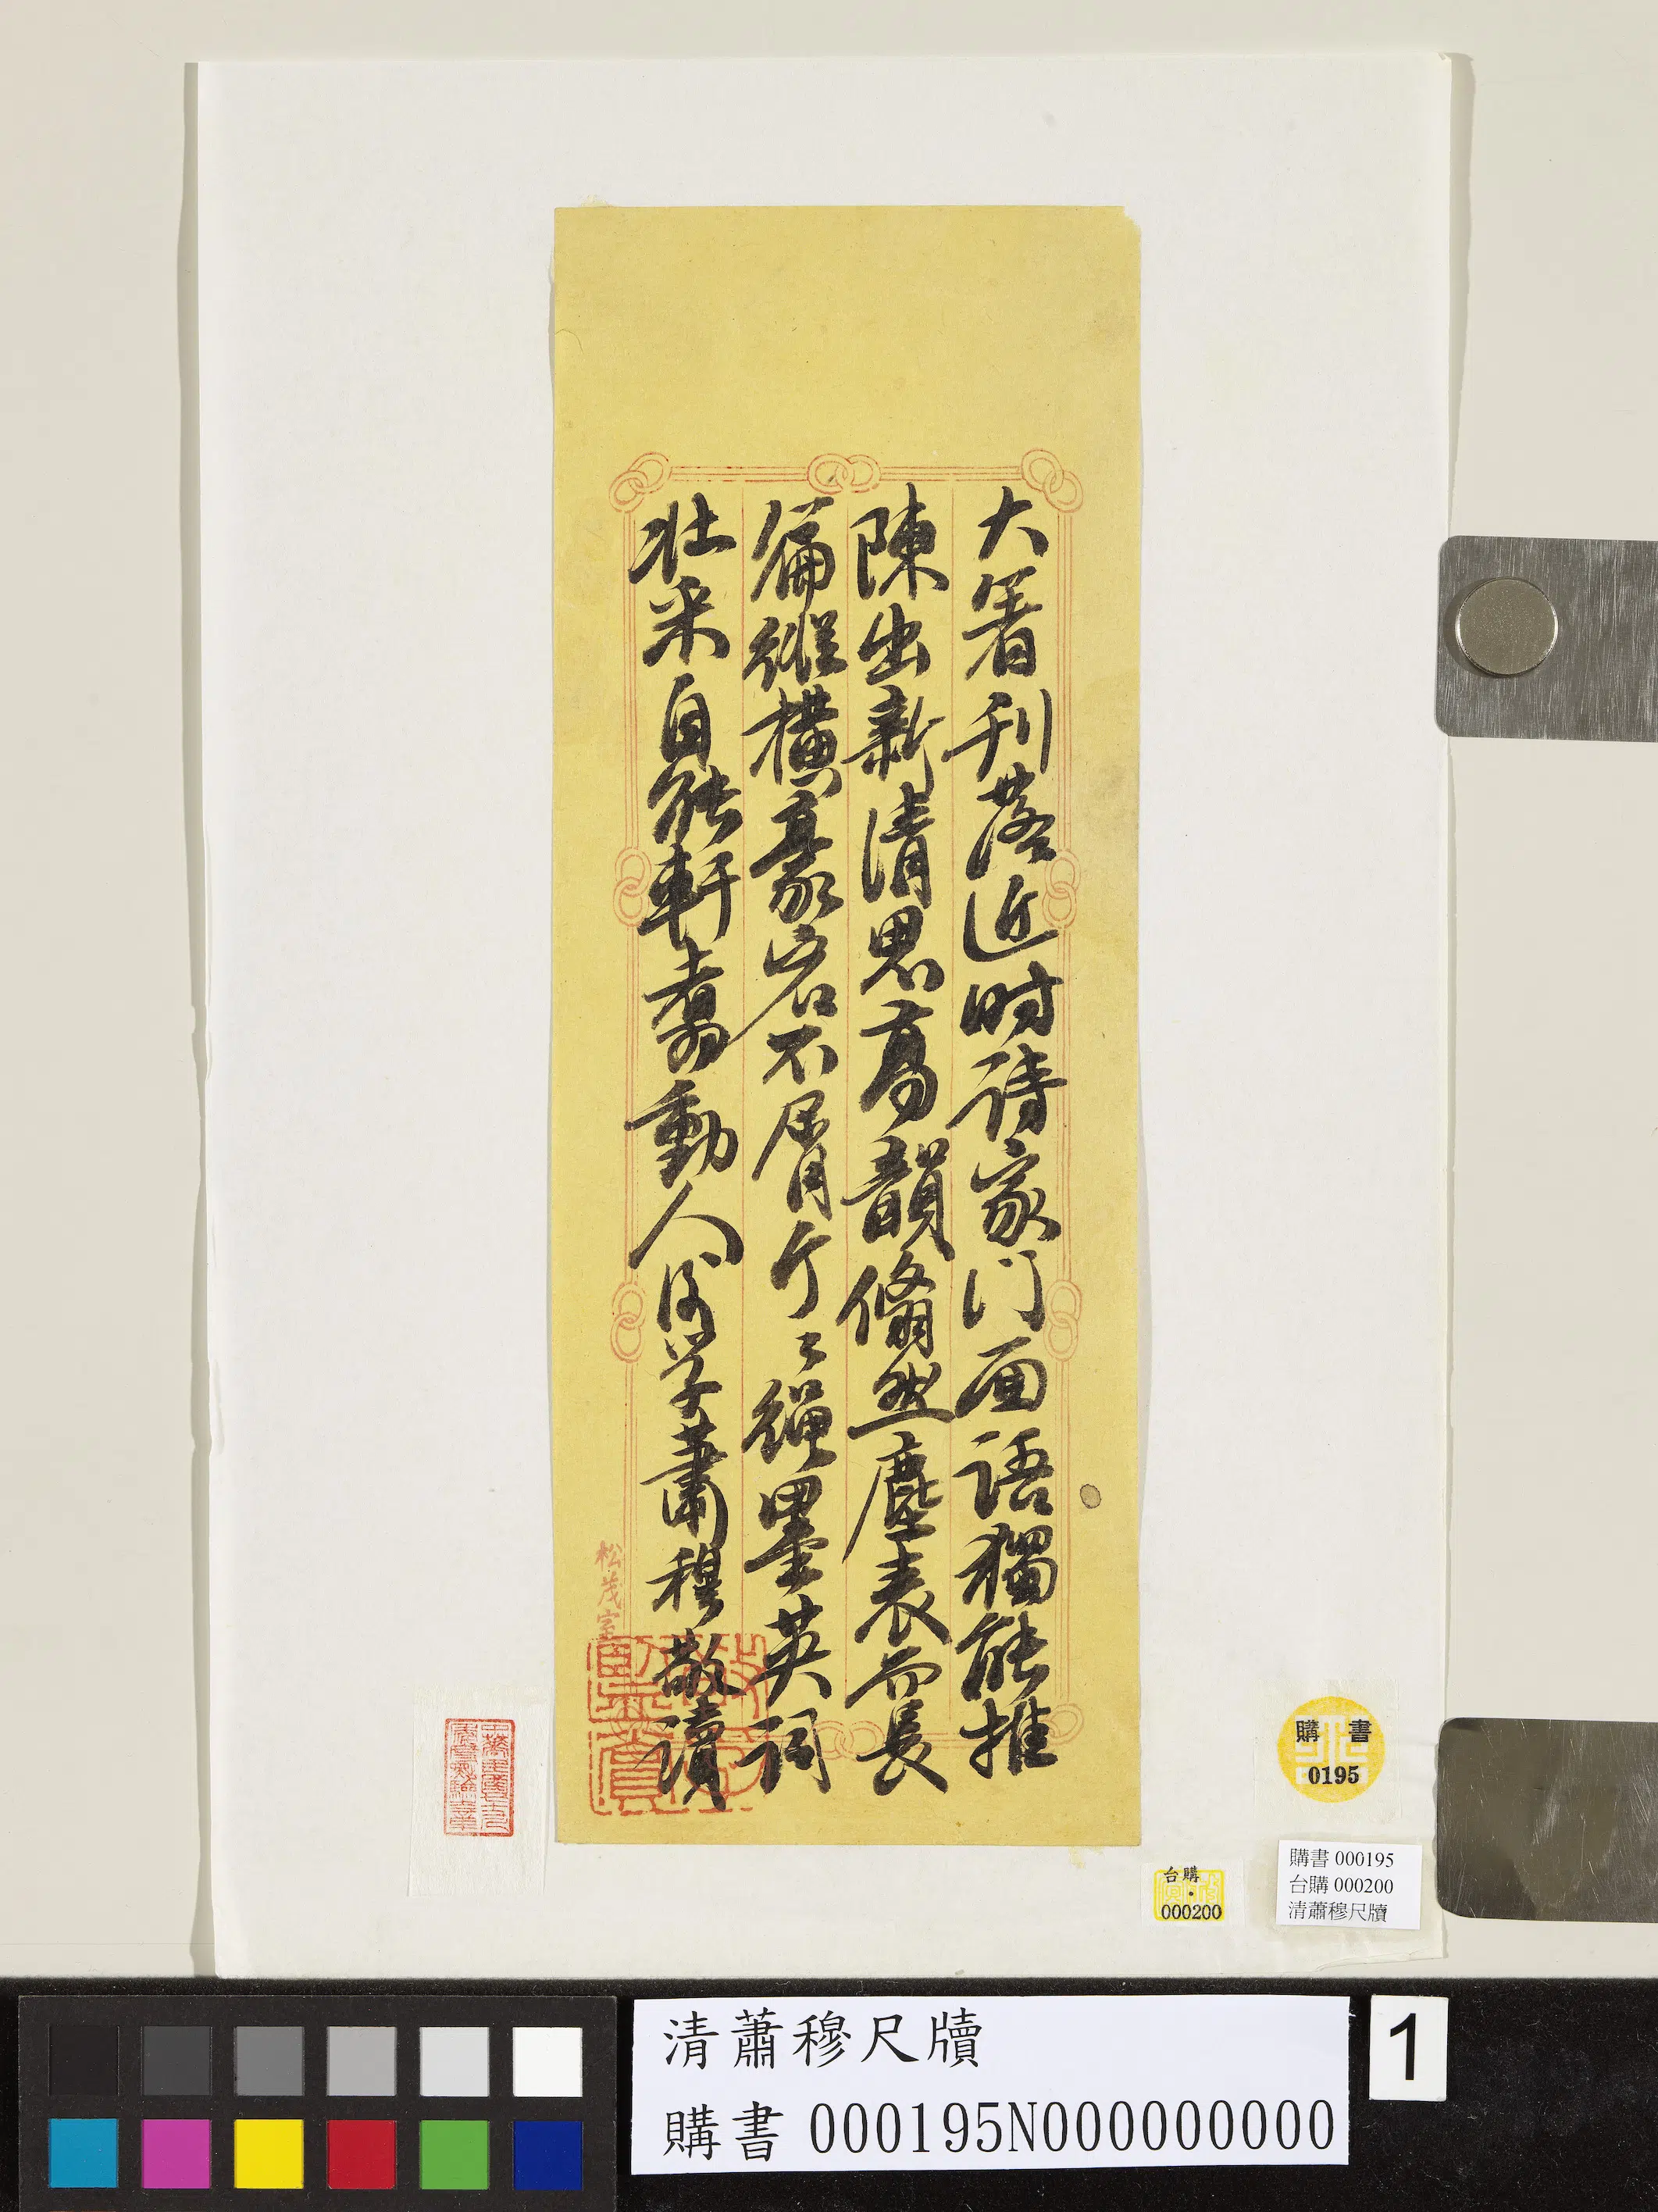 大箸刊落近时待家门面语獨能推
陳出新清思高韻翛然塵表而長
篇縱橫豪宕不屑斤〻繩墨英詞
壯采自能軒翥動人後学蕭穆敬讀
松茂室
購書
0195
台購
000200
購書 000195
台購 000200
清蕭穆尺牘
清蕭穆尺牘
購書 000195N000000000
1